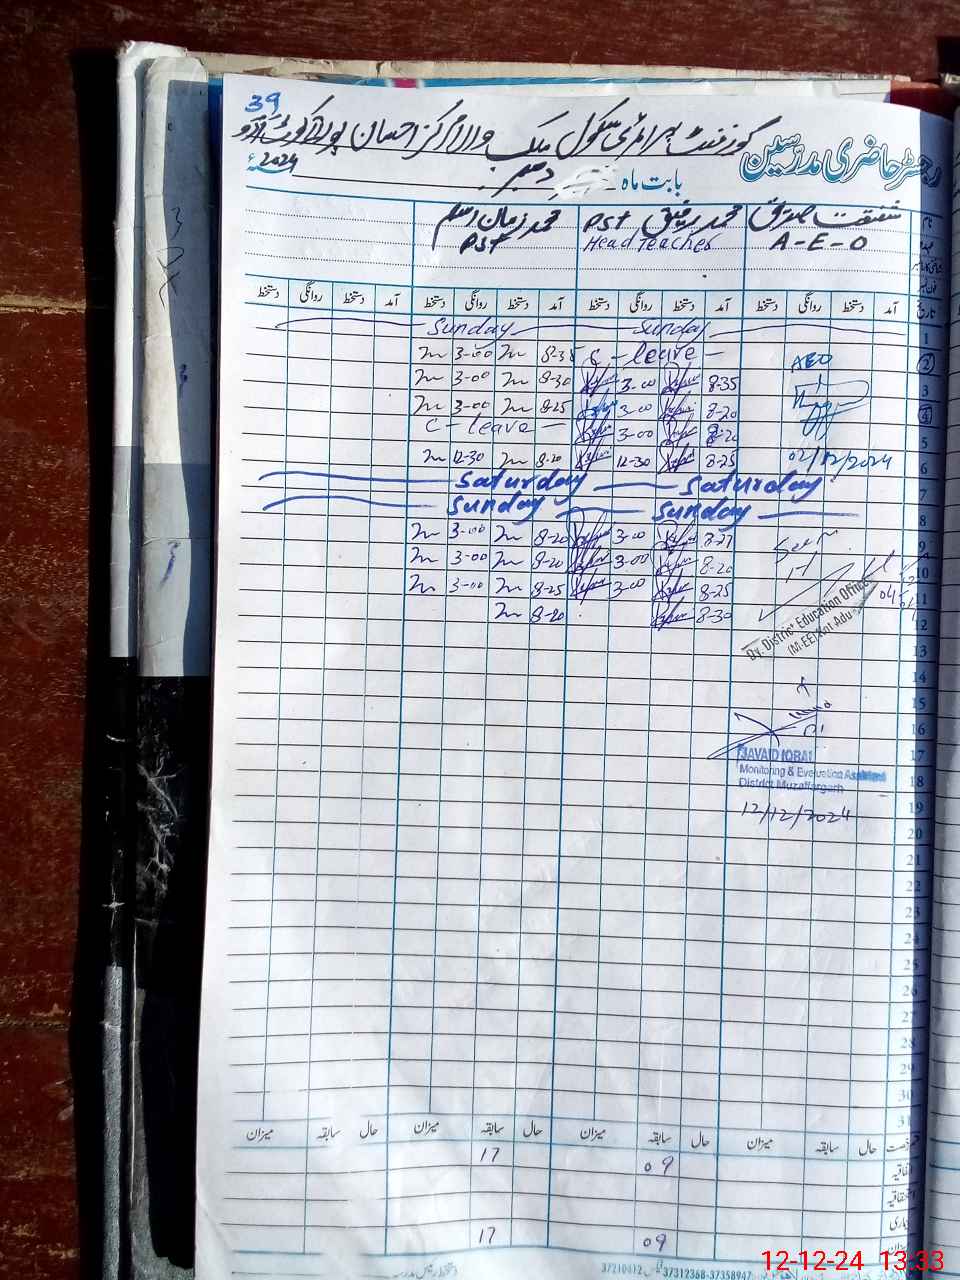 39
گورنمنٹ پرائمری سکول ملک والا مرکز احسان پور کوٹ ادو
رجسٹر حاضری مدرسین
بابت ماہ دسمبر 2024ء
شفقت صدیق محمد رفیق PST محمد زمان اسلم
A-E-O Head Teacher PST
تاریخ آمد دستخط روانگی دستخط آمد دستخط روانگی دستخط آمد دستخط روانگی دستخط آمد دستخط روانگی دستخط
1 Sunday Sunday
2 3-00 8-35 C-leave AEO
3 3-00 8-30 3-00 8-35
4 3-00 8-25 3-00 8-20
5 C-leave 3-00 8-20
6 12-30 8-20 12-30 8-25 02/12/2024
7 Saturday Saturday
8 Sunday Sunday
9 3-00 8-20 3-00 8-27 Seen
10 3-00 8-20 3-00 8-20
11 3-00 8-25 3-00 8-25
12 8-20 8-30
Dy. District Education Officer
(M-EE) Kot Adu
13
14
15
16
17
JAVAID IQBAL
18
Monitoring & Evaluation Assistant
District Muzaffargarh
19
12/12/2024
20
21
22
23
24
25
26
27
28
29
30
31
حال سابقہ میزان حال سابقہ میزان حال سابقہ میزان حال سابقہ میزان
17 09
17 09
37210412 37312368-37358947
12-12-24 13:33